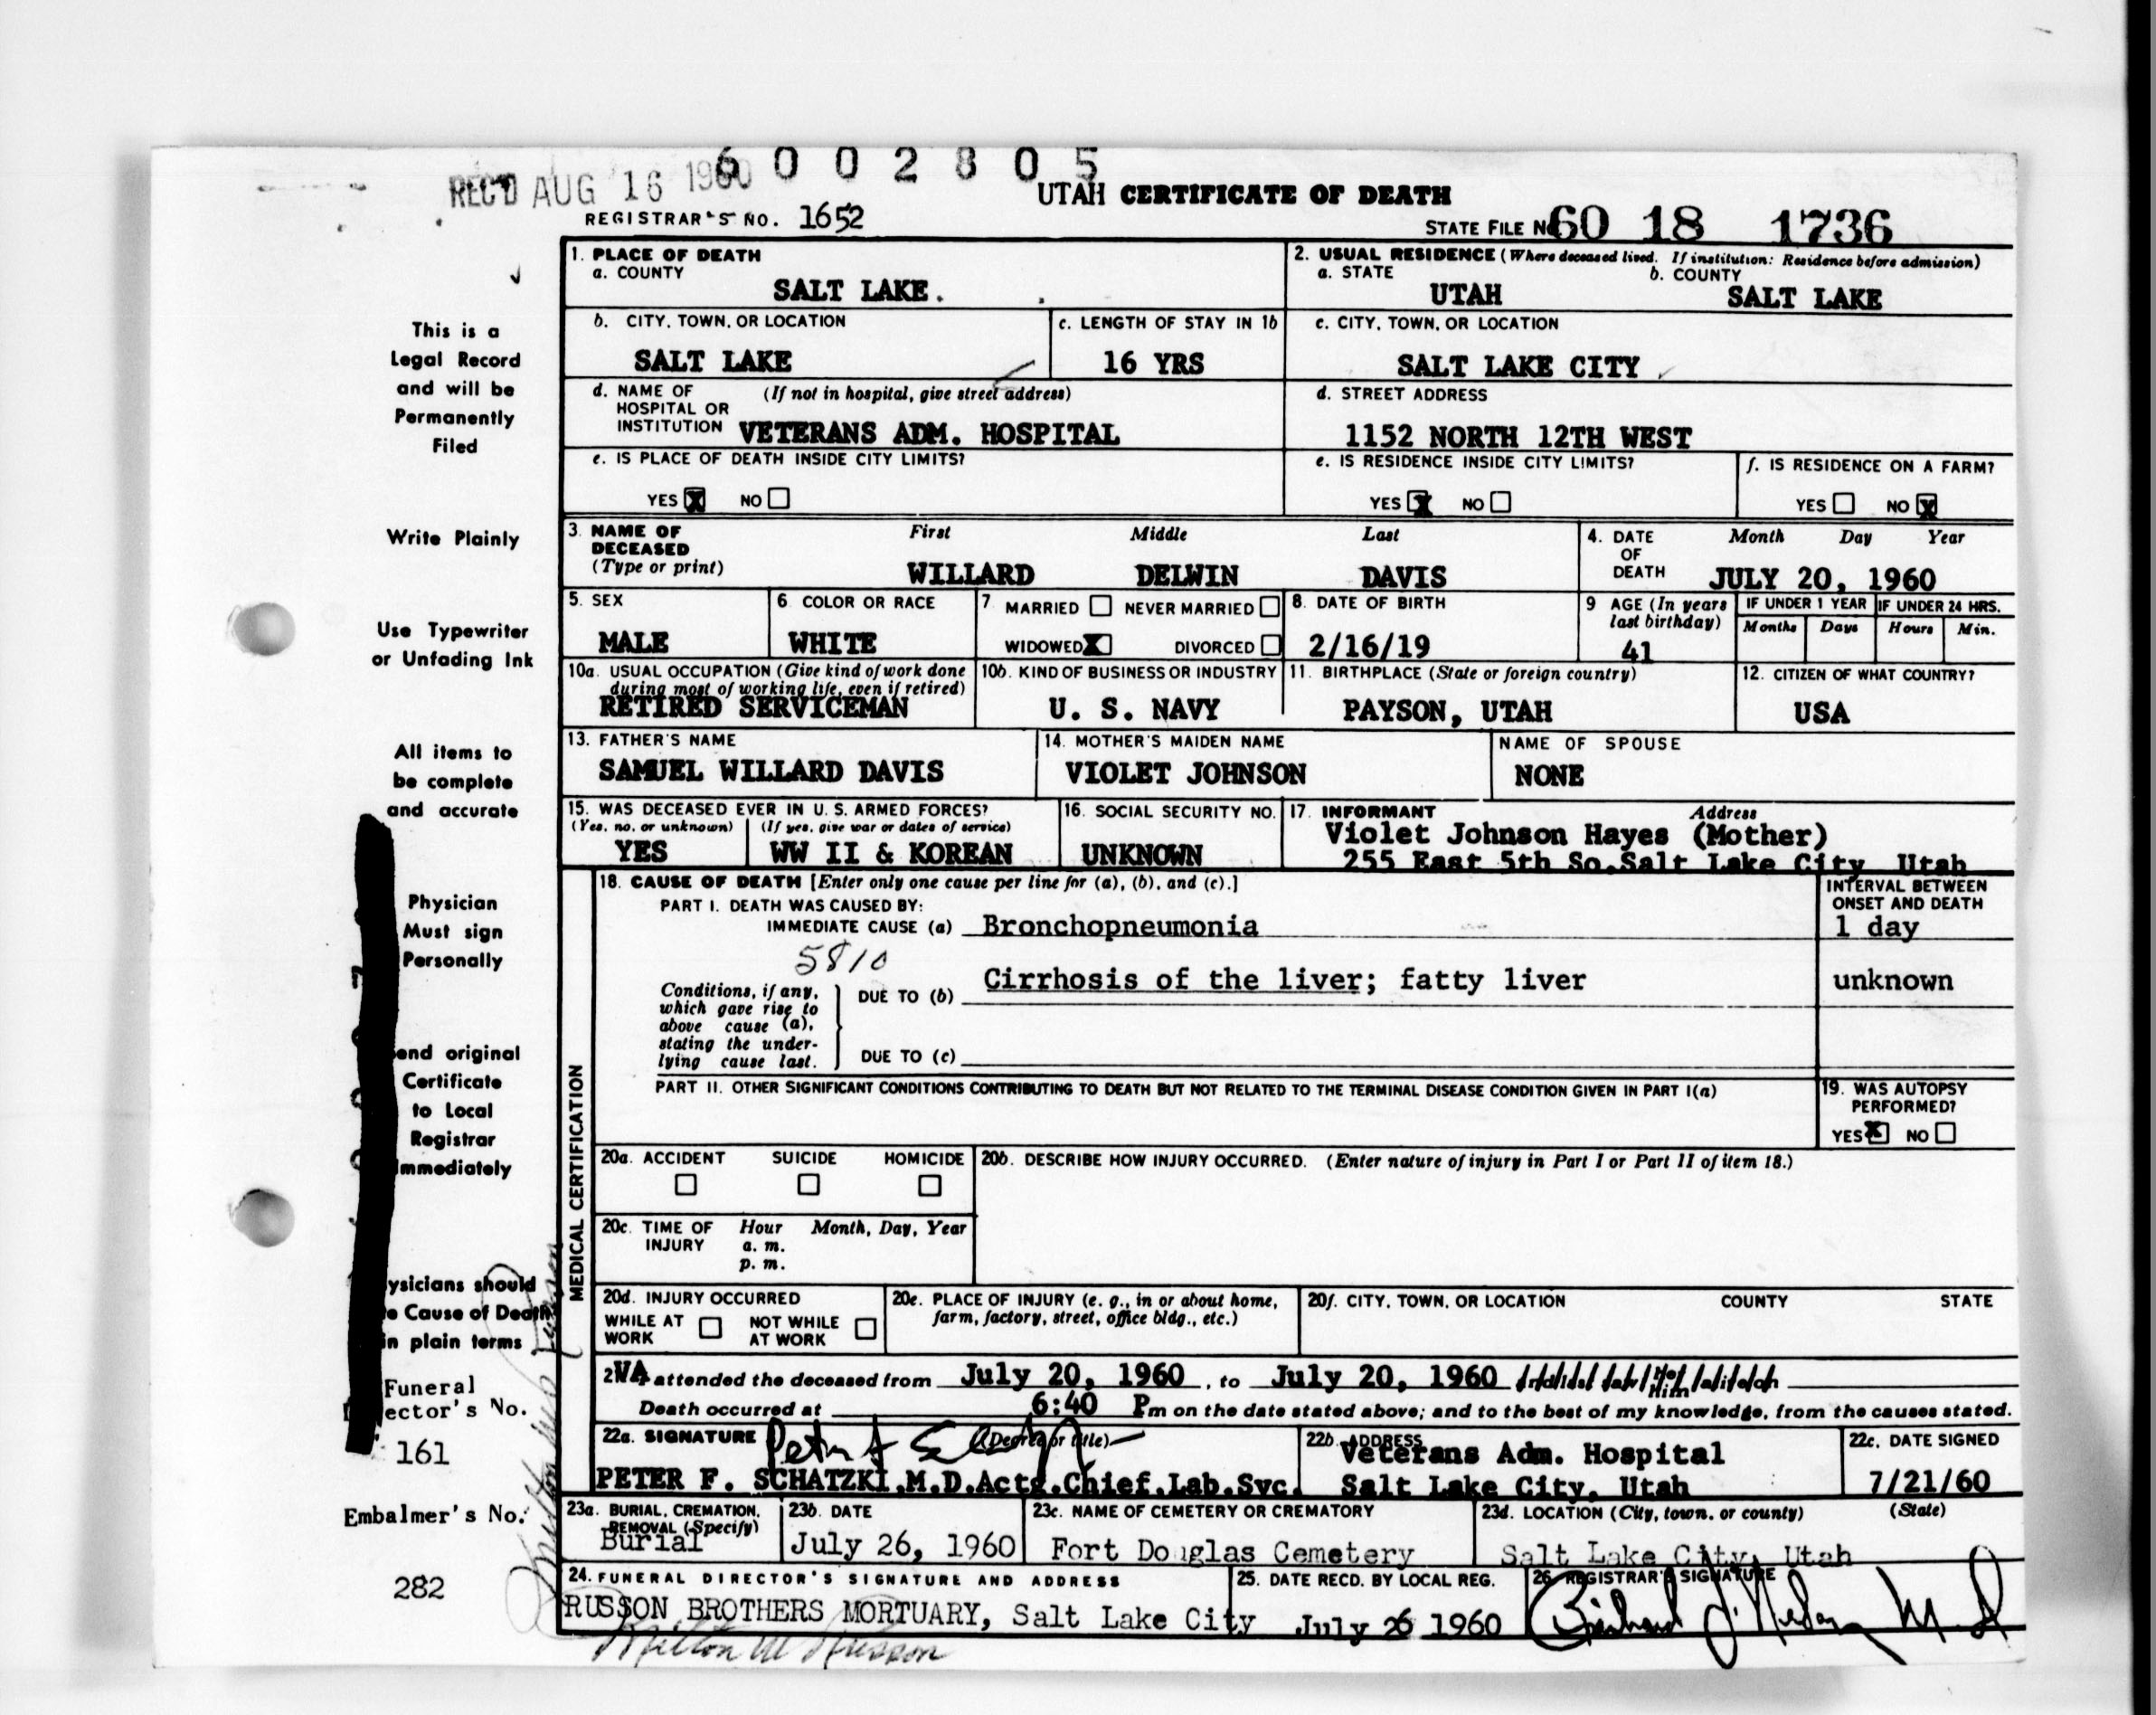 6 0 0 2 8 0 5
REC'D AUG 16 1960
UTAH CERTIFICATE OF DEATH
REGISTRAR'S NO. 1652
STATE FILE NO. 60 18 1736
1. PLACE OF DEATH
a. COUNTY
SALT LAKE.
2. USUAL RESIDENCE (Where deceased lived. If institution: Residence before admission)
a. STATE b. COUNTY
UTAH SALT LAKE
b. CITY, TOWN, OR LOCATION
SALT LAKE
c. LENGTH OF STAY IN 1b
16 YRS
c. CITY, TOWN, OR LOCATION
SALT LAKE CITY
d. NAME OF (If not in hospital, give street address)
HOSPITAL OR
INSTITUTION VETERANS ADM. HOSPITAL
d. STREET ADDRESS
1152 NORTH 12TH WEST
e. IS PLACE OF DEATH INSIDE CITY LIMITS?
YES X NO
e. IS RESIDENCE INSIDE CITY LIMITS?
YES X NO
f. IS RESIDENCE ON A FARM?
YES NO X
3. NAME OF First Middle Last
DECEASED
(Type or print) WILLARD DELWIN DAVIS
4. DATE Month Day Year
OF
DEATH JULY 20, 1960
5. SEX
MALE
6. COLOR OR RACE
WHITE
7 MARRIED NEVER MARRIED
WIDOWED X DIVORCED
8. DATE OF BIRTH
2/16/19
9 AGE (In years
last birthday)
41
IF UNDER 1 YEAR IF UNDER 24 HRS.
Months Days Hours Min.
10a. USUAL OCCUPATION (Give kind of work done
during most of working life, even if retired)
RETIRED SERVICEMAN
10b. KIND OF BUSINESS OR INDUSTRY
U. S. NAVY
11. BIRTHPLACE (State or foreign country)
PAYSON, UTAH
12. CITIZEN OF WHAT COUNTRY?
USA
13. FATHER'S NAME
SAMUEL WILLARD DAVIS
14. MOTHER'S MAIDEN NAME
VIOLET JOHNSON
NAME OF SPOUSE
NONE
15. WAS DECEASED EVER IN U. S. ARMED FORCES?
(Yes, no, or unknown) (If yes, give war or dates of service)
YES WW II & KOREAN
16. SOCIAL SECURITY NO.
UNKNOWN
17. INFORMANT Address
Violet Johnson Hayes (Mother)
255 East 5th So.Salt Lake City Utah
MEDICAL CERTIFICATION
18. CAUSE OF DEATH [Enter only one cause per line for (a), (b), and (c).]
PART I. DEATH WAS CAUSED BY:
IMMEDIATE CAUSE (a) Bronchopneumonia
INTERVAL BETWEEN
ONSET AND DEATH
1 day
5810
Conditions, if any,
which gave rise to
above cause (a),
stating the under-
lying cause last.
DUE TO (b) Cirrhosis of the liver; fatty liver
unknown
DUE TO (c)
PART II. OTHER SIGNIFICANT CONDITIONS CONTRIBUTING TO DEATH BUT NOT RELATED TO THE TERMINAL DISEASE CONDITION GIVEN IN PART I(a)
19. WAS AUTOPSY
PERFORMED?
YES X NO
20a. ACCIDENT SUICIDE HOMICIDE
20b. DESCRIBE HOW INJURY OCCURRED. (Enter nature of injury in Part I or Part II of item 18.)
20c. TIME OF Hour Month, Day, Year
INJURY a. m.
p. m.
20d. INJURY OCCURRED
WHILE AT NOT WHILE
WORK AT WORK
20e. PLACE OF INJURY (e. g., in or about home,
farm, factory, street, office bldg., etc.)
20f. CITY, TOWN, OR LOCATION COUNTY STATE
2 VA attended the deceased from July 20, 1960, to July 20, 1960
Death occurred at 6:40 Pm on the date stated above; and to the best of my knowledge, from the causes stated.
22a. SIGNATURE (Degree or title)
PETER F. SCHATZKI,M.D.Actg.Chief,Lab.Svc.
22b. ADDRESS
Veterans Adm. Hospital
Salt Lake City, Utah
22c. DATE SIGNED
7/21/60
23a. BURIAL, CREMATION,
REMOVAL (Specify)
Burial
23b. DATE
July 26, 1960
23c. NAME OF CEMETERY OR CREMATORY
Fort Douglas Cemetery
23d. LOCATION (City, town, or county) (State)
Salt Lake City, Utah
24. FUNERAL DIRECTOR'S SIGNATURE AND ADDRESS
RUSSON BROTHERS MORTUARY, Salt Lake City
Milton W Russon
25. DATE RECD. BY LOCAL REG.
July 26 1960
26. REGISTRAR'S SIGNATURE
This is a
Legal Record
and will be
Permanently
Filed
Write Plainly
Use Typewriter
or Unfading Ink
All items to
be complete
and accurate
Physician
Must sign
Personally
end original
Certificate
to Local
Registrar
Immediately
ysicians should
e Cause of Death
in plain terms
Funeral
ector's No.
161
Embalmer's No.
282